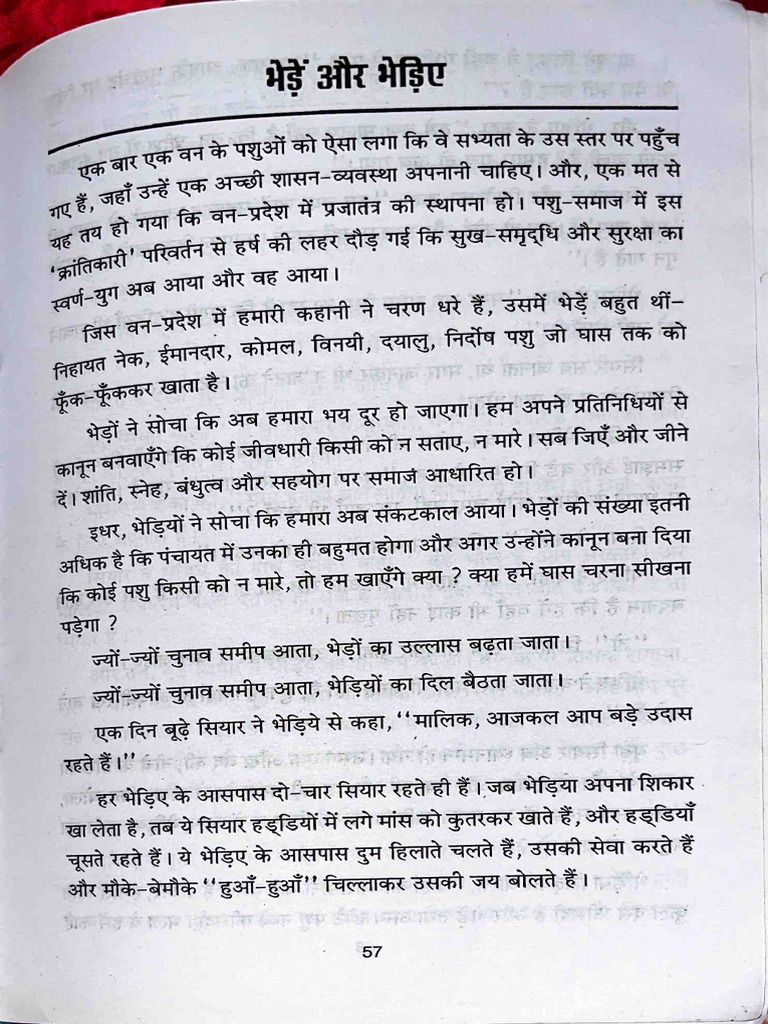 भेड़ें और भेड़िए
एक बार एक वन के पशुओं को ऐसा लगा कि वे सभ्यता के उस स्तर पर पहुँच
गए हैं, जहाँ उन्हें एक अच्छी शासन-व्यवस्था अपनानी चाहिए। और, एक मत से
यह तय हो गया कि वन-प्रदेश में प्रजातंत्र की स्थापना हो। पशु-समाज में इस
'क्रांतिकारी' परिवर्तन से हर्ष की लहर दौड़ गई कि सुख-समृद्धि और सुरक्षा का
स्वर्ण-युग अब आया और वह आया।
जिस वन-प्रदेश में हमारी कहानी ने चरण धरे हैं, उसमें भेड़ें बहुत थीं-
निहायत नेक, ईमानदार, कोमल, विनयी, दयालु, निर्दोष पशु जो घास तक को
फूँक-फूँककर खाता है।
भेड़ों ने सोचा कि अब हमारा भय दूर हो जाएगा। हम अपने प्रतिनिधियों से
कानून बनवाएँगे कि कोई जीवधारी किसी को न सताए, न मारे। सब जिएँ और जीने
दें। शांति, स्नेह, बंधुत्व और सहयोग पर समाज आधारित हो।
इधर, भेड़ियों ने सोचा कि हमारा अब संकटकाल आया। भेड़ों की संख्या इतनी
अधिक है कि पंचायत में उनका ही बहुमत होगा और अगर उन्होंने कानून बना दिया
कि कोई पशु किसी को न मारे, तो हम खाएँगे क्या ? क्या हमें घास चरना सीखना
पड़ेगा ?
ज्यों-ज्यों चुनाव समीप आता, भेड़ों का उल्लास बढ़ता जाता।
ज्यों-ज्यों चुनाव समीप आता, भेड़ियों का दिल बैठता जाता।
एक दिन बूढ़े सियार ने भेड़िये से कहा, "मालिक, आजकल आप बड़े उदास
रहते हैं।"
हर भेड़िए के आसपास दो-चार सियार रहते ही हैं। जब भेड़िया अपना शिकार
खा लेता है, तब ये सियार हड्डियों में लगे मांस को कुतरकर खाते हैं, और हड्डियाँ
चूसते रहते हैं। ये भेड़िए के आसपास दुम हिलाते चलते हैं, उसकी सेवा करते हैं
और मौके-बेमौके "हुआँ-हुआँ" चिल्लाकर उसकी जय बोलते हैं।
57